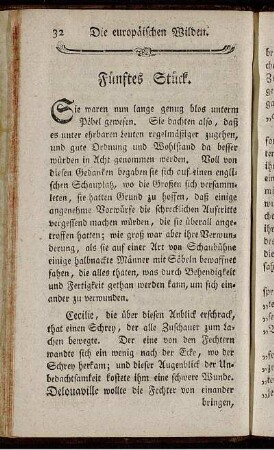 32 Die europäischen Wilden.
Fünftes Stück.
Sie waren nun lange genug blos unterm
Pöbel gewesen. Sie dachten also, daß
es unter ehrbaren Leuten regelmäßiger zugehen,
und gute Ordnung und Wohlstand da besser
würden in Acht genommen werden. Voll von
diesen Gedanken begaben sie sich auf einen englischen
Schauplatz, wo die Großen sich versammleten,
sie hatten Grund zu hoffen, daß einige
angenehme Vorwürfe die schrecklichen Auftritte
vergessend machen würden, die sie überall angetroffen
hatten; wie groß war aber ihre Verwunderung,
als sie auf einer Art von Schaubühne
einige halbnackte Männer mit Säbeln bewaffnet
sahen, die alles thaten, was durch Behendigkeit
und Fertigkeit gethan werden kann, um sich einander
zu verwunden.
Cecilie, die über diesen Anblick erschrack,
that einen Schrey, der alle Zuschauer zum Lachen
bewegte. Der eine von den Fechtern
wandte sich ein wenig nach der Ecke, wo der
Schrey herkam; und dieser Augenblick der Unbedachtsamkeit
kostete ihm eine schwere Wunde.
Delouaville wollte die Fechter von einander
bringen,